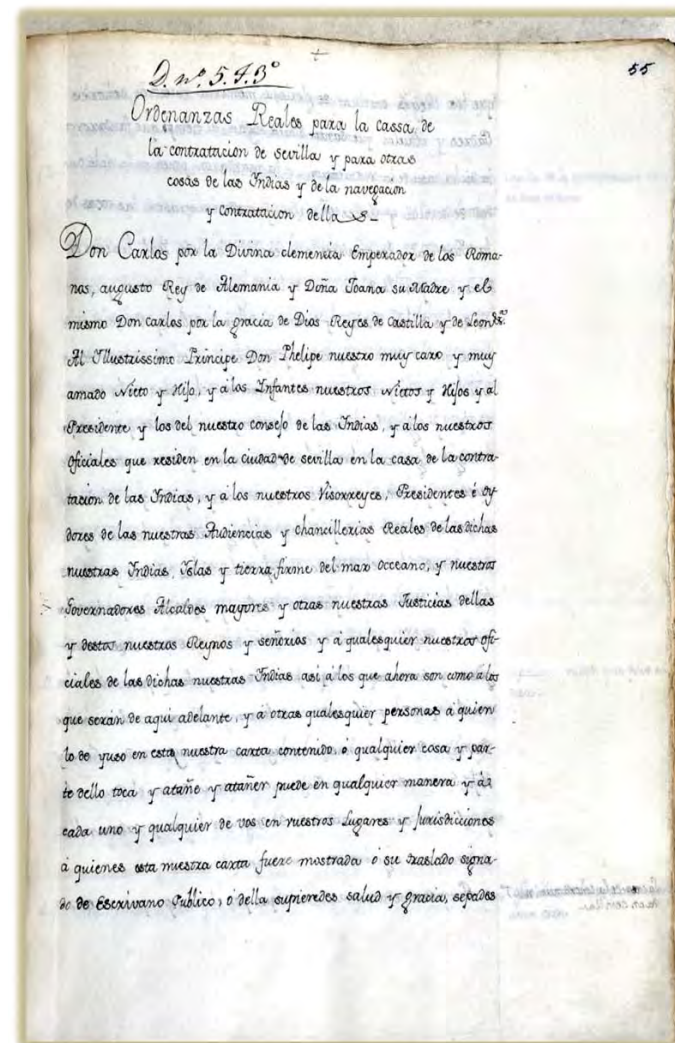 D. nº. 5. J. 3º
55
Ordenanzas Reales para la cassa de
la contratacion de sevilla y para otras
cosas de las Indias y de la navegacion
y contratacion dellas
Don Carlos por la Divina clemencia Emperador de los Roma-
nos, augusto Rey de Alemania y Doña Joana su Madre y el
mismo Don carlos por la gracia de Dios Reyes de Castilla y de Leon &ª.
Al Illustrissimo Principe Don Phelipe nuestro muy caro y muy
amado Nieto y Hijo, y á los Infantes nuestros Nietos y Hijos y al
Presidente y los del nuestro consejo de las Indias, y á los nuestros
oficiales que residen en la ciudad de sevilla en la casa de la contra-
tacion de las Indias, y á los nuestros Visorreyes, Presidentes é oy-
dores de las nuestras Audiencias y chancillerias Reales de las dichas
nuestras Indias, Islas y tierra firme del mar occeano, y nuestros
Governadores Alcaldes mayores y otras nuestras Justicias dellas
y destos nuestros Reynos y señorios y á qualesquier nuestros ofi-
ciales de las dichas nuestras Indias asi á los que ahora son como á los
que seran de aqui adelante, y á otras qualesquier personas á quien
lo de yuso en esta nuestra carta contenido, ó qualquier cosa y par-
te dello toca y atañe y atañer puede en qualquier manera y á
cada uno y qualquier de vos en vuestros Lugares y Jurisdicciones
á quienes esta nuestra carta fuere mostrada ó su traslado signa-
do de Escrivano Publico, ó della supieredes salud y gracia, sepades